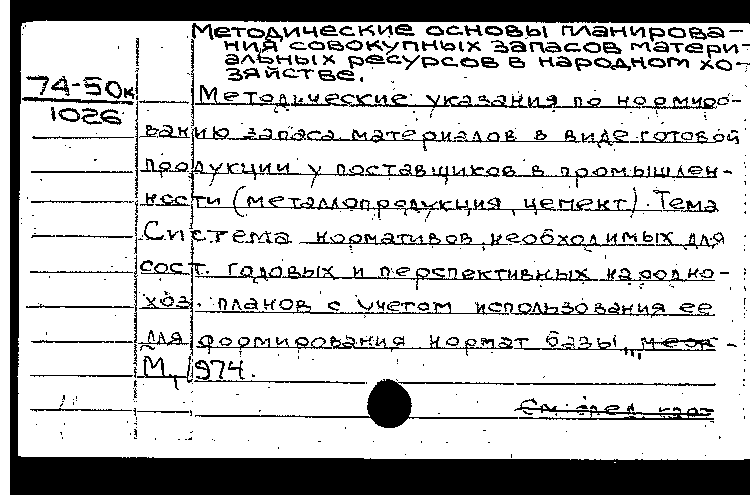 Методические основы планирова-
ния совокупных запасов матери-
альных ресурсов в народном хо-
зяйстве.
74-50к
1026
Методические указания по нормиро-
ванию запаса материалов в виде готовой
продукции у поставщиков в промышлен-
ности (металлопродукция, цемент). Тема
Система нормативов, необходимых для
сост. годовых и перспективных народно-
хоз. планов с учетом использования ее
для формирования нормат базы
М., 1974.
См. след. карт